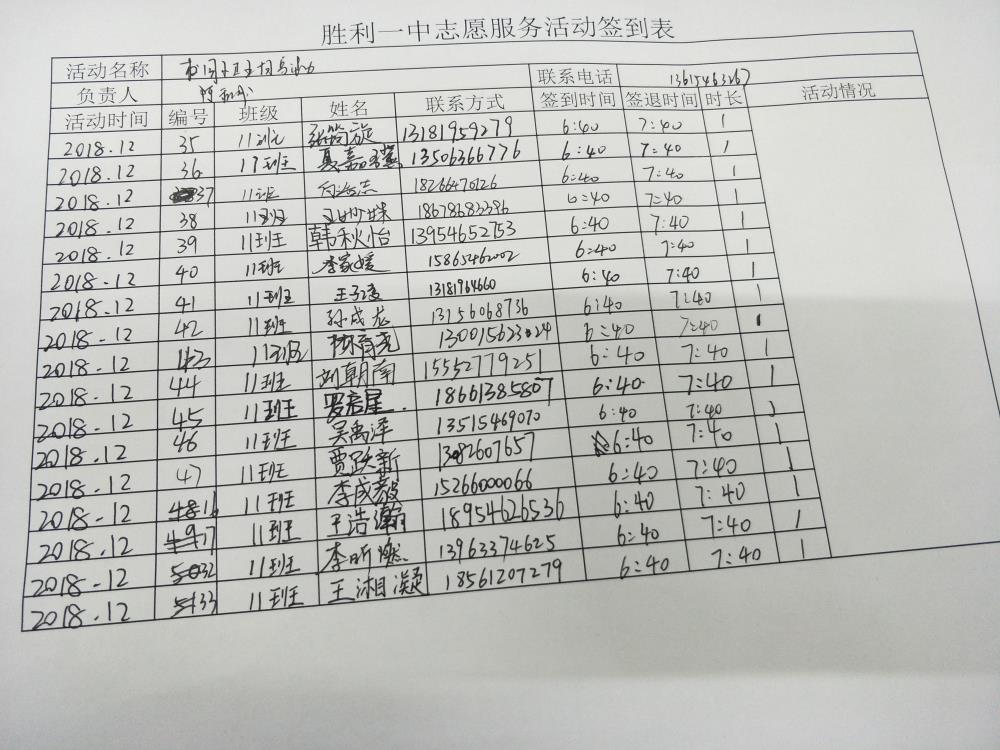 胜利一中志愿服务活动签到表
活动名称 联系电话 13615463167
负责人
活动时间 编号 班级 姓名 联系方式 签到时间 签退时间 时长 活动情况
2018.12 35 11班 张筒旋 13181959279 6:40 7:40 1
2018.12 36 11班 夏嘉 13506366776 6:40 7:40 1
2018.12 37 11班 18266470126 6:40 7:40 1
2018.12 38 11班 王妙姝 18678683396 6:40 7:40 1
2018.12 39 11班 韩秋怡 13954652753 6:40 7:40 1
2018.12 40 11班 李家媛 15865462002 6:40 7:40 1
2018.12 41 11班 王子凌 13181964660 6:40 7:40 1
2018.12 42 11班 孙成龙 13156068736 6:40 7:40 1
2018.12 43 11班 130015623024 6:40 7:40 1
2018.12 44 11班 刘朝南 15552779251 6:40 7:40 1
2018.12 45 11班 罗启星 18661385807 6:40 7:40 1
2018.12 46 11班 吴禹泽 13515469070 6:40 7:40 1
2018.12 47 11班 贾跃新 1382607657 6:40 7:40 1
2018.12 16 11班 李成毅 15266000066 6:40 7:40 1
2018.12 17 11班 王浩瀚 18954626536 6:40 7:40 1
2018.12 32 11班 李昕燃 13963374625 6:40 7:40 1
2018.12 33 11班 王湘凝 18561207279 6:40 7:40 1